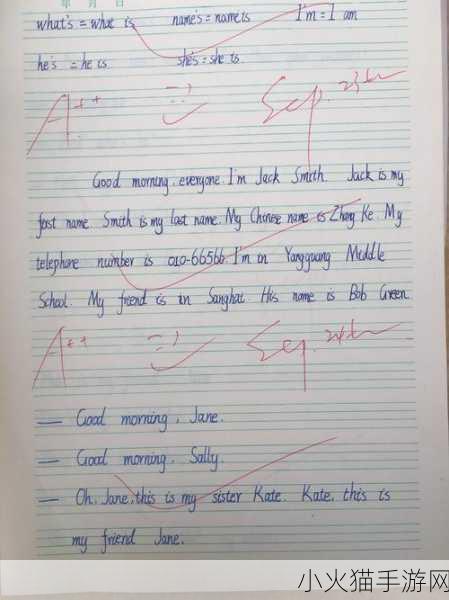 年 月 日
what's = what is name's = name is I'm = I am
he's = he is she's = she is
A++ Sep. 23th
Good morning, everyone. I'm Jack Smith. Jack is my
first name. Smith is my last name. My Chinese name is Zhang Ke. My
telephone number is 010-66566. I'm in Yangguang Middle
School. My friend is in Sanghai. His name is Bob Green.
A++ Sep. 24th
— Good morning, Jane.
— Good morning, Sally.
— Oh, Jane, this is my sister Kate. Kate, this is
my friend Jane.
小火猫手游网